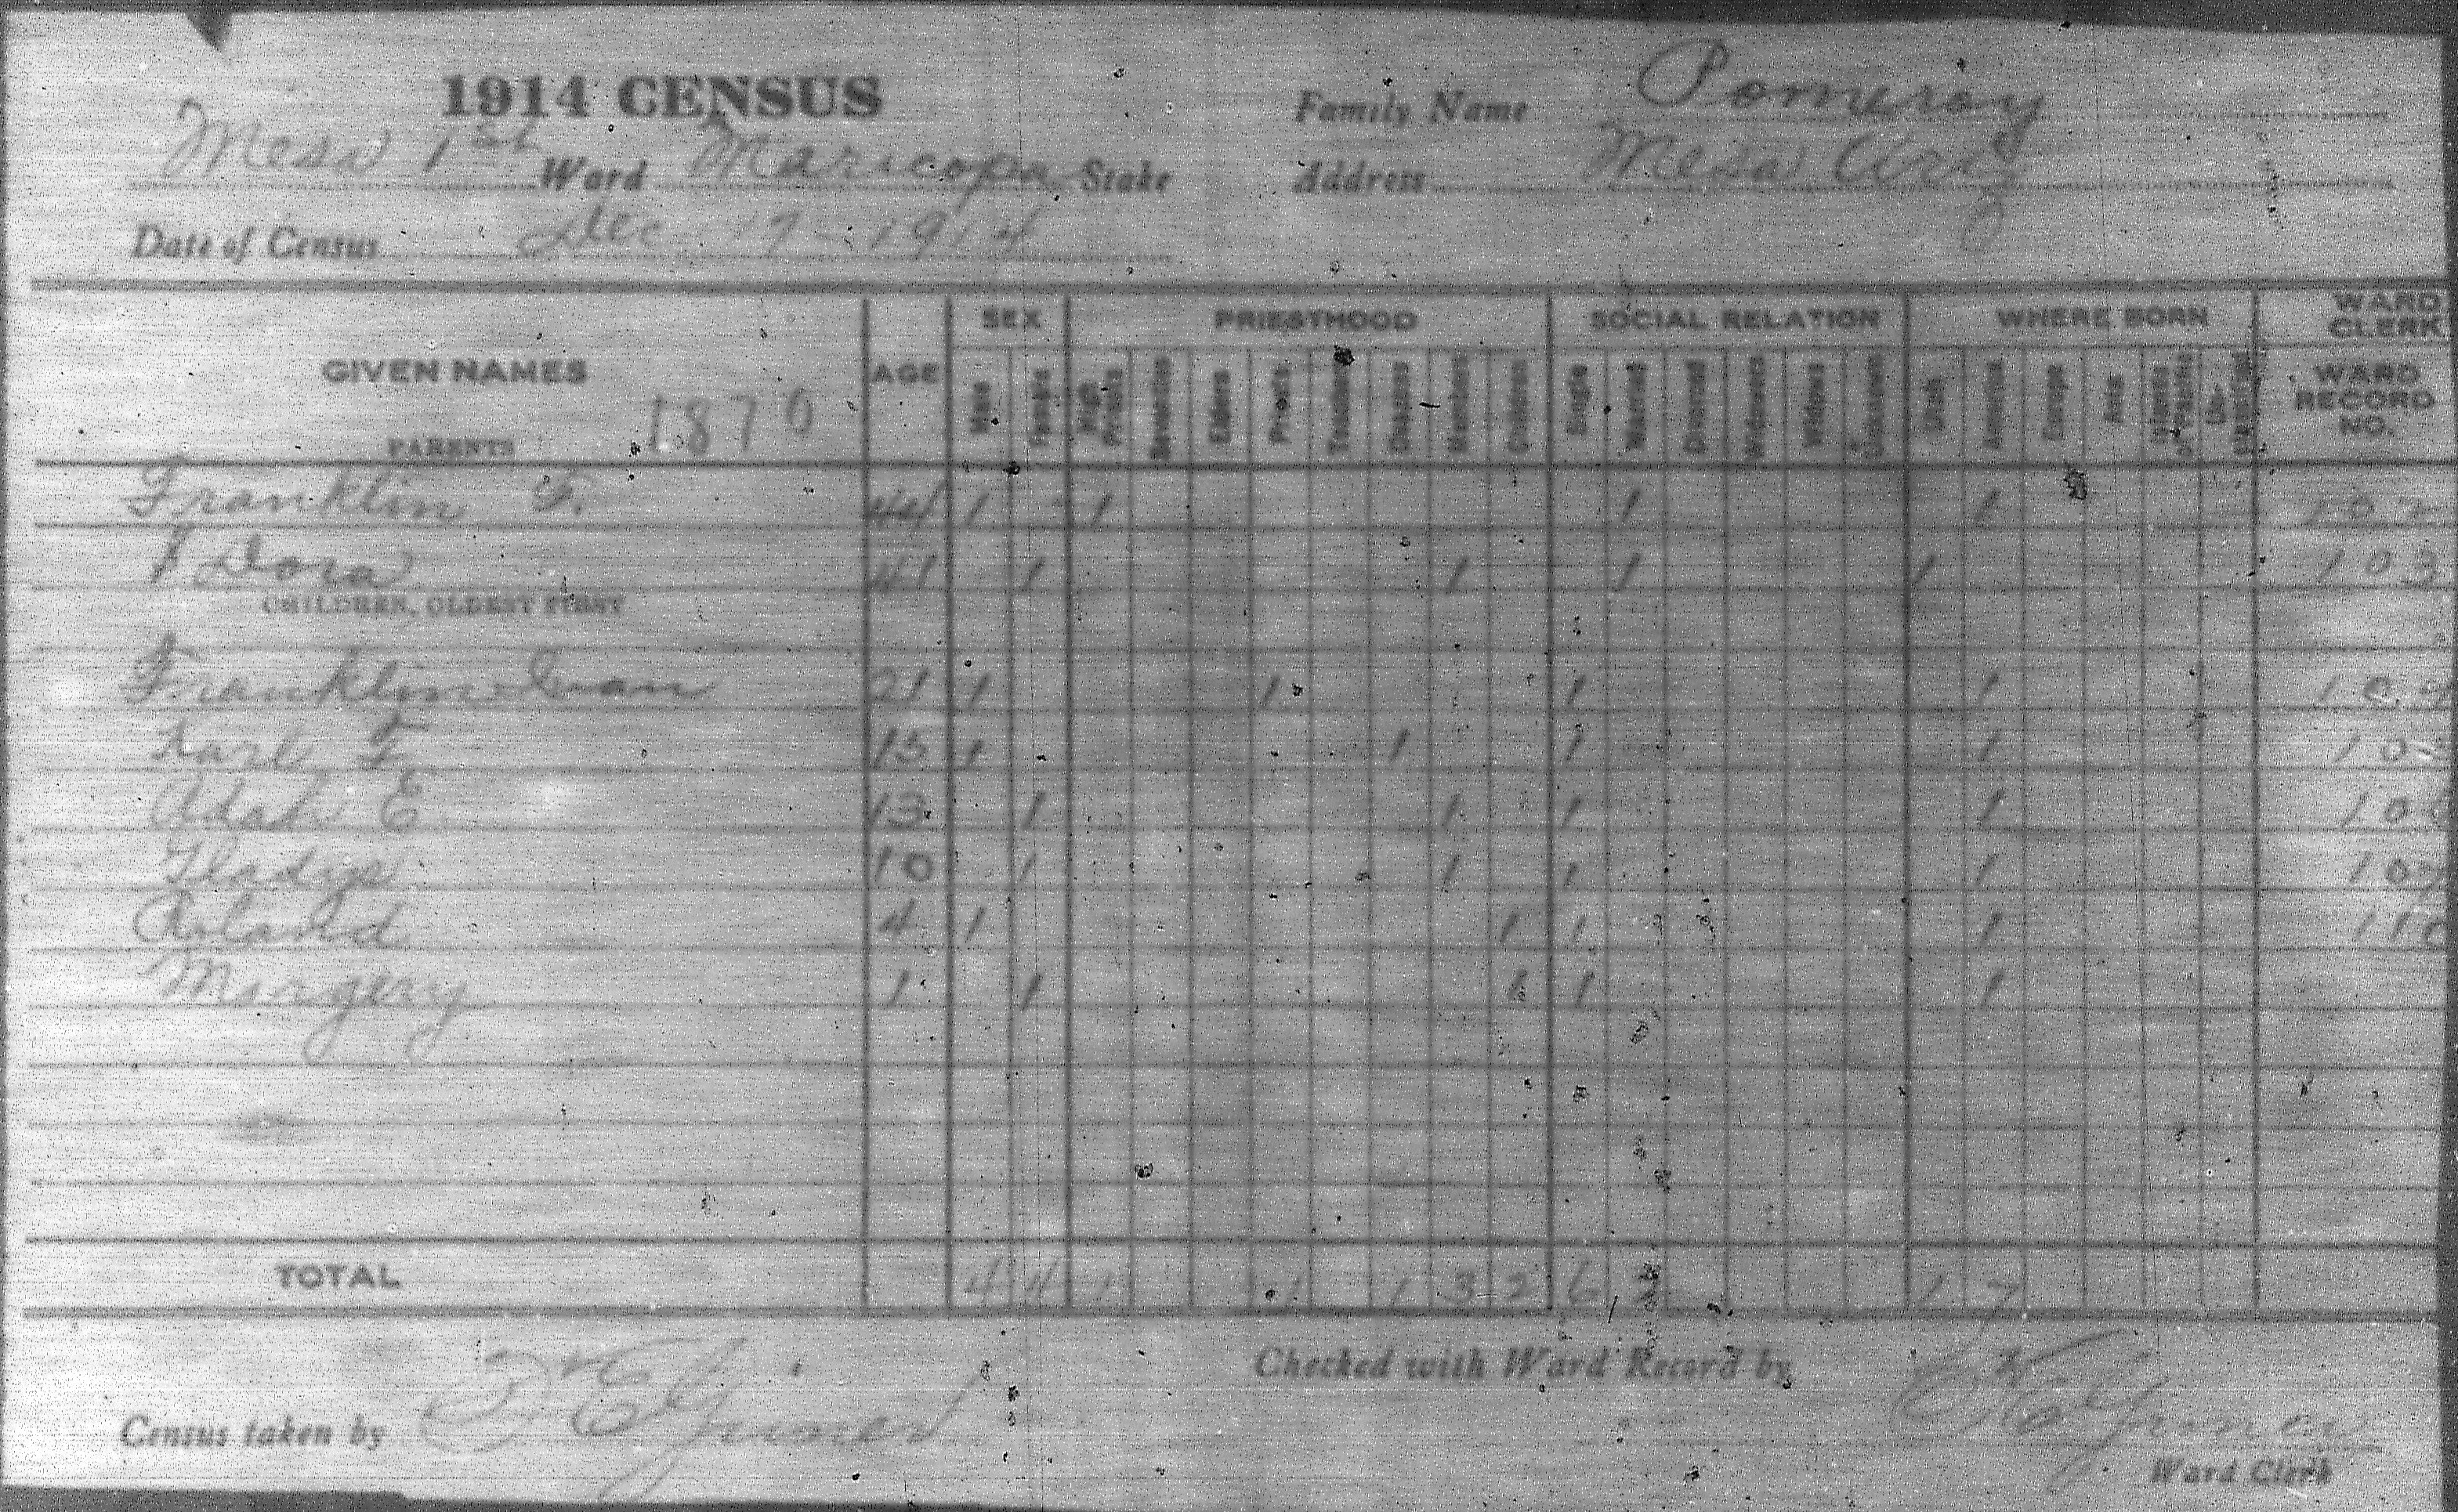 1914 CENSUS
Family Name Pomeroy
Mesa 1st Ward Maricopa Stake
Address Mesa Ariz
Date of Census Dec 17 - 1914
GIVEN NAMES AGE SEX PRIESTHOOD SOCIAL RELATION WHERE BORN WARD CLERK
PARENTS 1870 Males Females High Priests Seventies Elders Priests Teachers Deacons Members Children Single Married Divorced Widowers Widows Utah America Europe Asia Islands of Pacific WARD RECORD NO.
Franklin F. 44 1 1 1 1
Dora 41 1 1 1 1 103
CHILDREN, OLDEST FIRST
Franklin Ivan 21 1 1 1 1
Karl F 15 1 1 1 1
Adah E 13 1 1 1 1
Gladys 10 1 1 1 1
Roland 4 1 1 1 1
Margery 1 1 1 1 1
TOTAL 4 4 1 1 1 3 2 6 2 1 7
Checked with Ward Record by
Census taken by
Ward Clerk